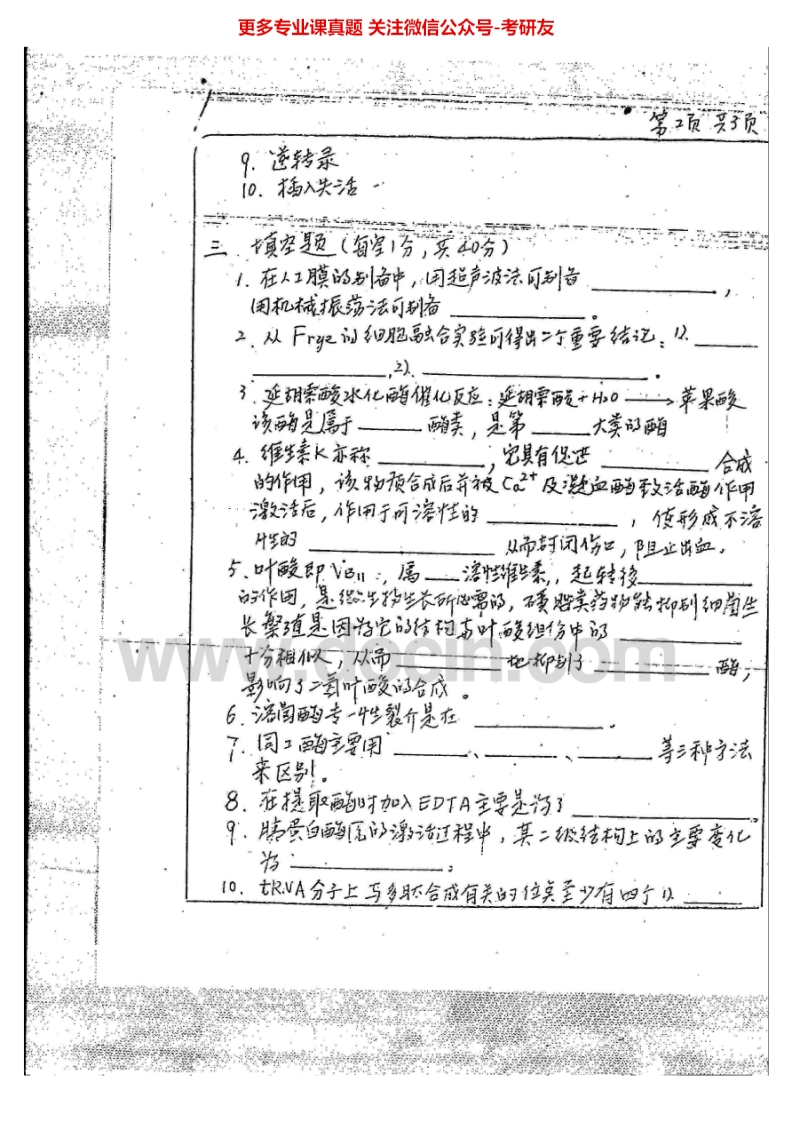 更多专业课真题 关注微信公众号-考研友
第2页 共3页
9. 逆转录
10. 插入失活
三、填空题（每空1分，共40分）
1. 在人工膜的制备中，用超声波法可制备 ____________，
用机械振荡法可制备 ____________。
2. 从Frye的细胞融合实验可得出二个重要结论：1). ______
____________, 2). ____________________。
3. 延胡索酸水化酶催化反应：延胡索酸+H2O ——→ 苹果酸
该酶是属于 ______ 酶类，是第 ______ 大类的酶
4. 维生素K亦称 __________，它具有促进 __________ 合成
的作用，该物质合成后并被Ca2+及凝血酶致活酶作用
激活后，作用于可溶性的 ____________，使形成不溶
性的 ______________ 从而封闭伤口，阻止出血。
5. 叶酸即VB11，属 ___ 溶性维生素，起转移 __________
的作用，是微生物生长所必需的，磺胺类药物能抑制细菌生
长繁殖是因为它的结构与叶酸组份中的 ____________
十分相似，从而 __________ 地抑制了 __________ 酶，
影响了二氢叶酸的合成。
6. 溶菌酶专一性裂介是在 ____________。
7. 同工酶主要用 ________、________、________ 等三种方法
来区别。
8. 在提取酶时加入EDTA主要是为了 ______________。
9. 胰蛋白酶原的激活过程中，其二级结构上的主要变化
为 ______________。
10. tRNA分子上与多肽合成有关的位点至少有四个 1). ______
www.docin.com